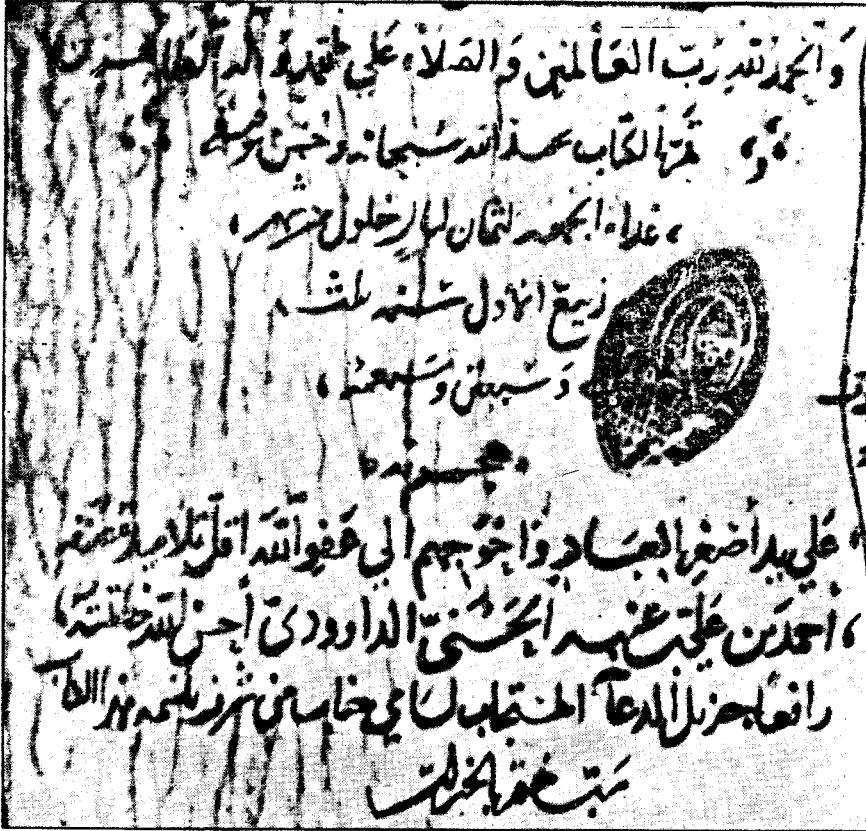 والحمد لله رب العالمين والصلاة على محمد وآله الطاهرين
تم الكتاب بحمد الله سبحانه وحسن توفيقه
غداة الجمعة لثمان ليال خلون من شهر
ربيع الاول سنة ثلث
وسبعين وسبعمئة
هجرية
على يد أضعف العباد وأحوجهم إلى عفو الله أقل تلاميذ مصنفه
أحمد بن علي بن عنبة الحسني الداوودي أحسن الله خاتمته
رافعا بجزيل الدعاء المستجاب لسامي جناب من هذا الكتاب
بالخيرات